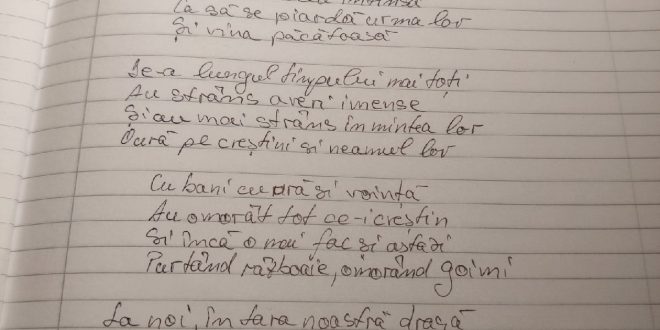 Ca să se piardă urma lor
Și vina păcătoasă
De-a lungul timpului mai toți
Au strâns averi imense
Și au mai strâns în mintea lor
Oură pe creștini și neamul lor
Cu bani cu ură și voință
Au omorât tot ce-i creștin
Și încă o mai fac și astăzi
Purtând războaie, omorând goimi
La noi, în țara noastră dragă